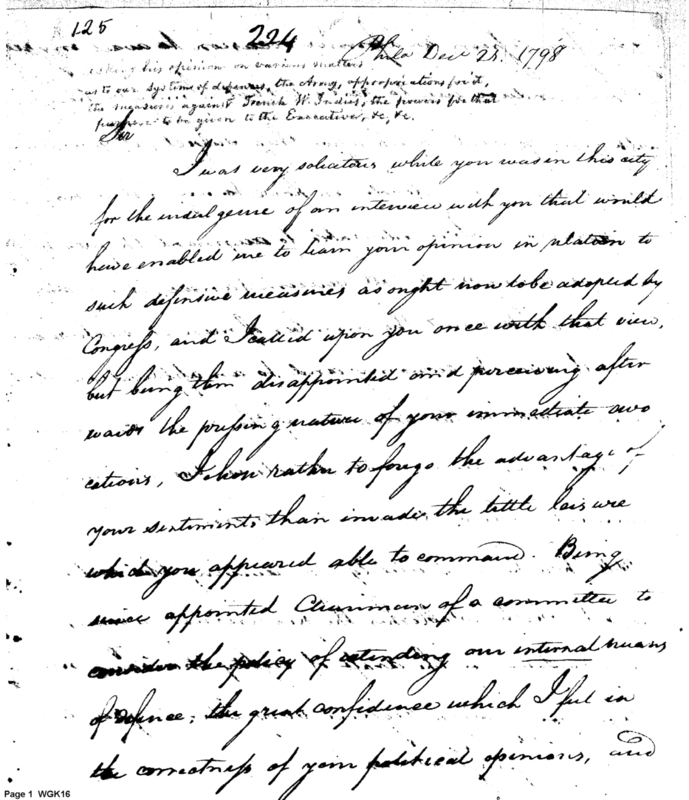 125
224
Phila Decr 28. 1798
asking his opinion on various matters
as to our systems of defences, the Army, appropriations for it,
the measures against French W. Indies, the powers for that
purpose to be given to the Executive, &c, &c.
Sir
I was very solicitous while you was in this city
for the indulgence of an interview with you that would
have enabled me to learn your opinion in relation to
such defensive measures as ought now to be adopted by
Congress, and I called upon you once with that view,
but being then disappointed and perceiving after
wards the pressing nature of your immediate avo
cations, I chose rather to forgo the advantage of
your sentiments than invade the little leisure
which you appeared able to command. Being
since appointed Chairman of a committee to
consider the policy of extending our internal means
of defence; the great confidence which I feel in
the correctness of your political opinions, and
Page 1 WGK16